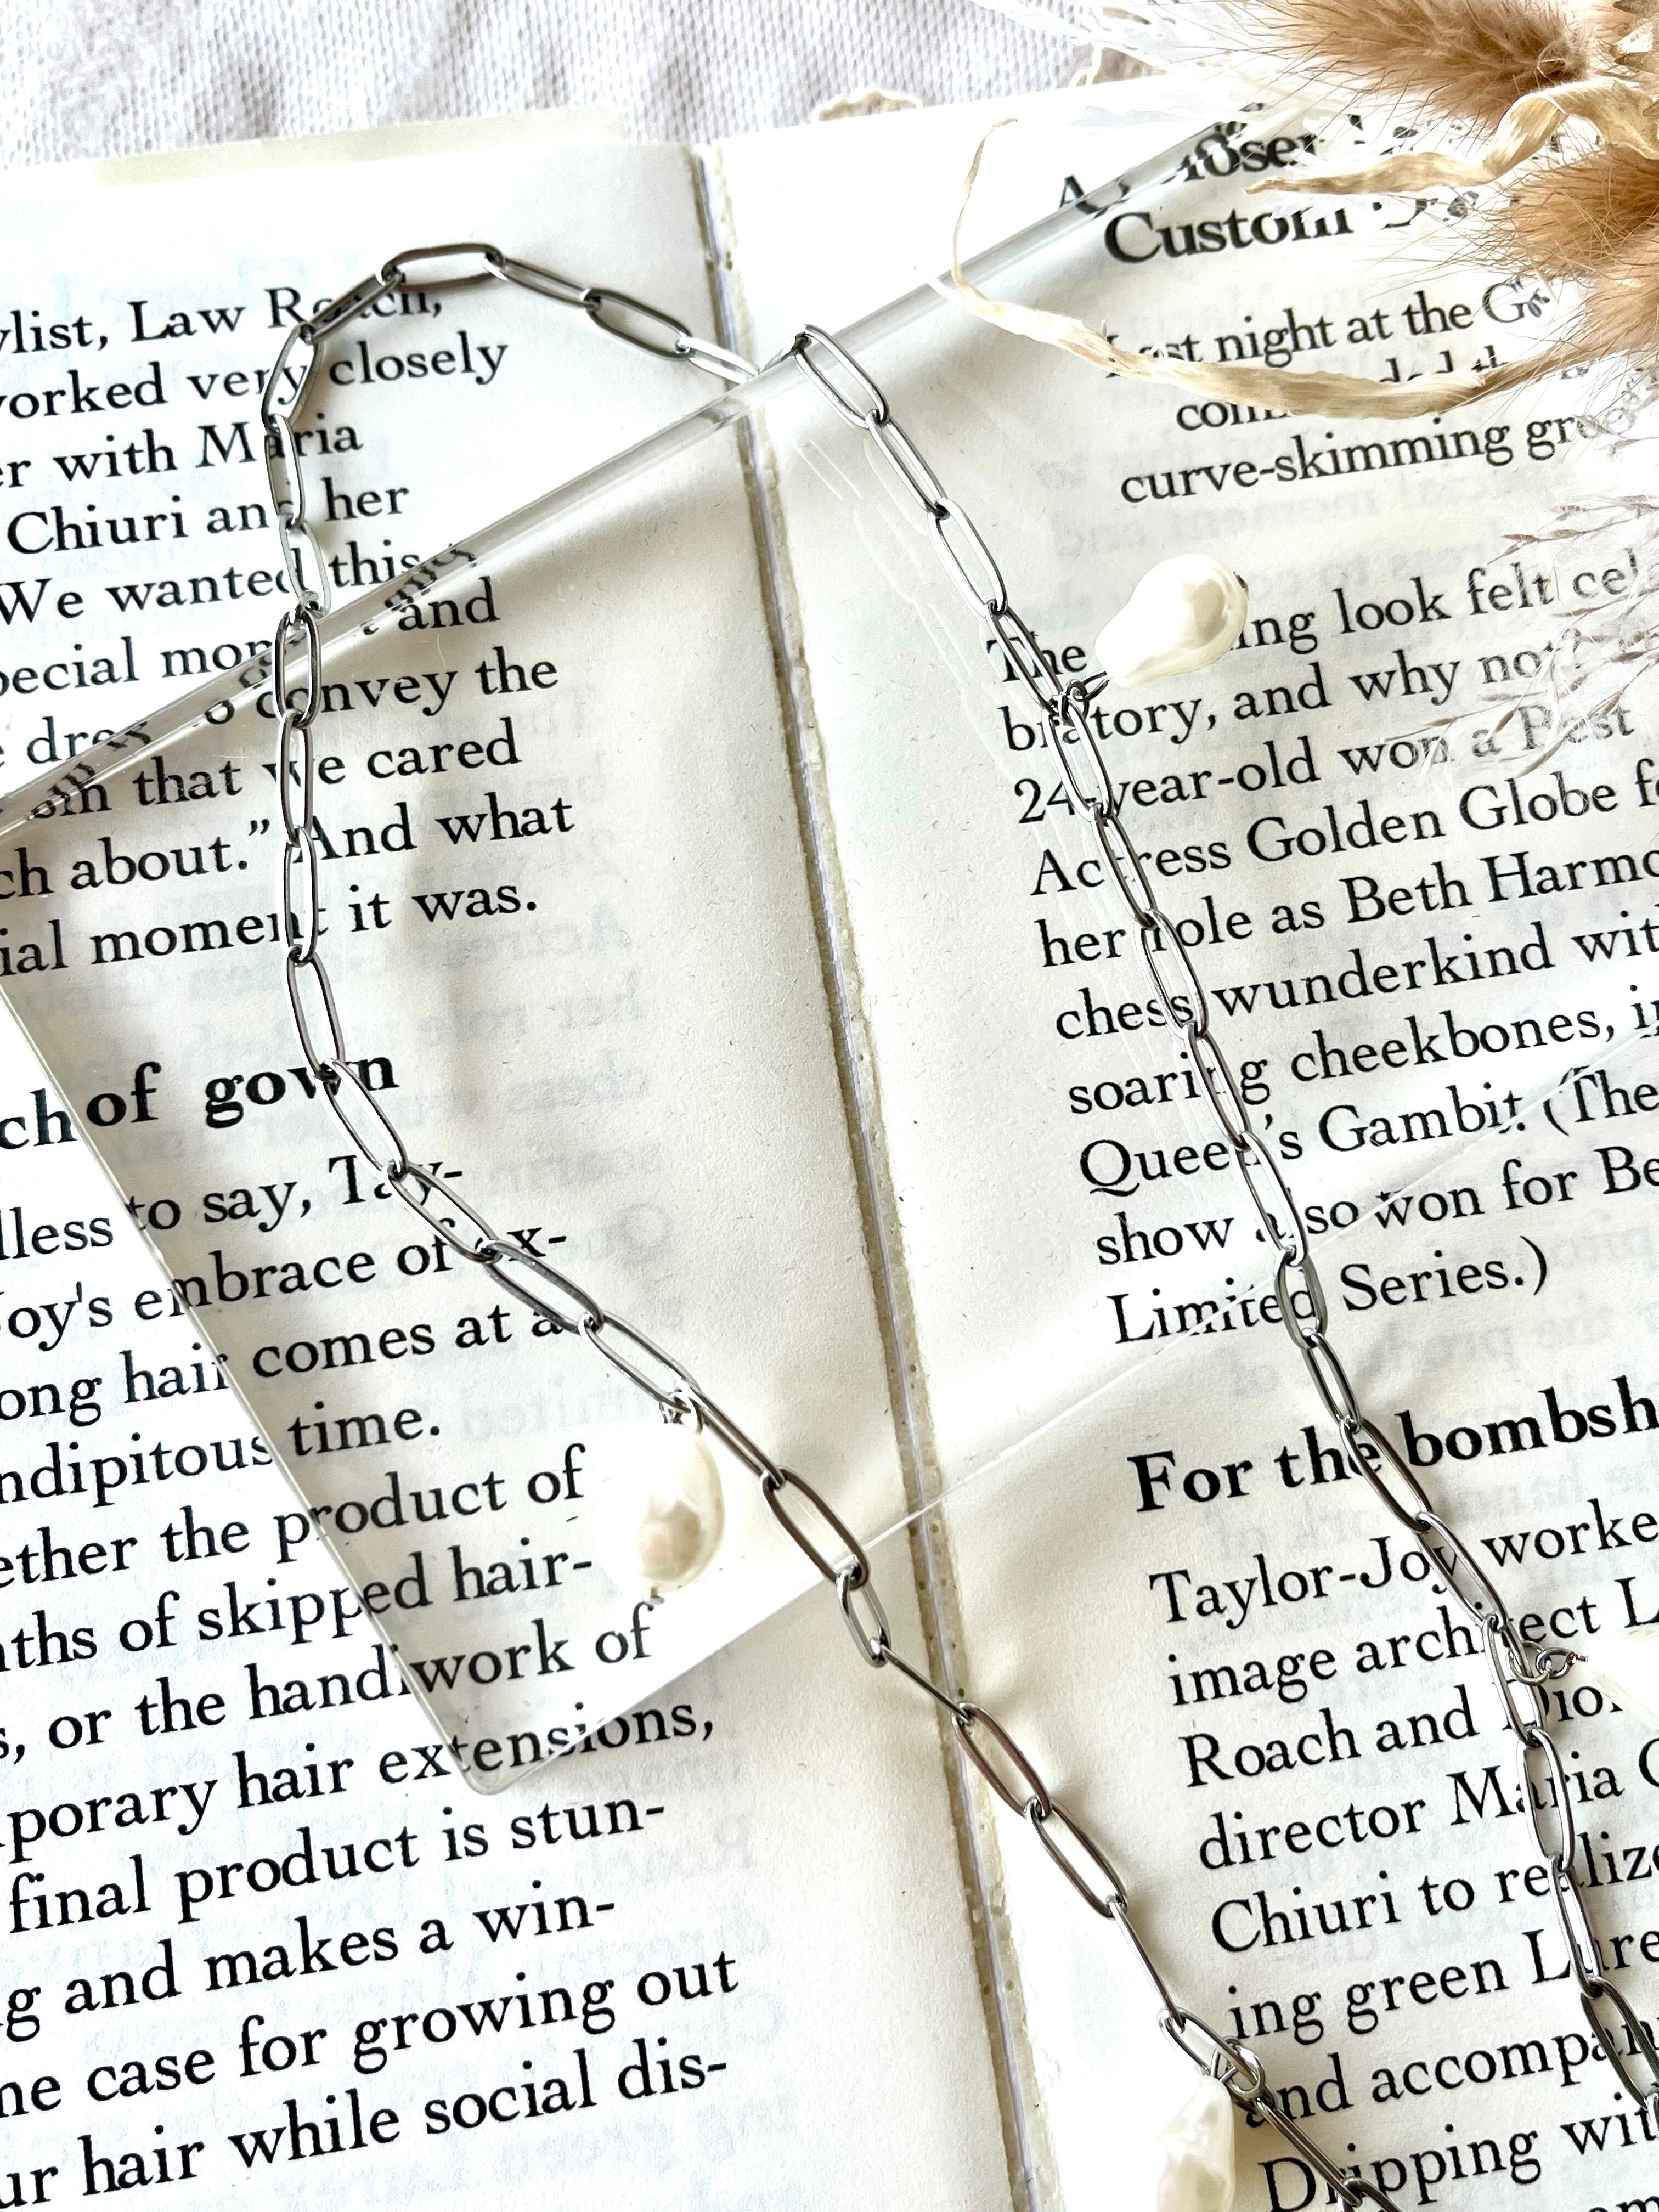 ylist, Law Roach,
worked very closely
er with Maria
Chiuri and her
We wanted this
pecial moment and
e dress to convey the
om that we cared
ch about.” And what
ial moment it was.
ch of gown
dless to say, Tay-
Joy's embrace of ex-
ong hair comes at a
ndipitous time.
ether the product of
nths of skipped hair-
s, or the handiwork of
porary hair extensions,
final product is stun-
g and makes a win-
ne case for growing out
ur hair while social dis-
A Closer
Custom
Last night at the G
curve-skimming gre
The ing look felt cel
bratory, and why not?
24-year-old won a Best
Actress Golden Globe fo
her role as Beth Harmo
chess wunderkind wit
soaring cheekbones, in
Queen's Gambit. (The
show also won for Be
Limited Series.)
For the bombsh
Taylor-Joy worke
image architect L
Roach and Dior
director Maria G
Chiuri to realize
ing green Lure
and accompan
Dripping wit